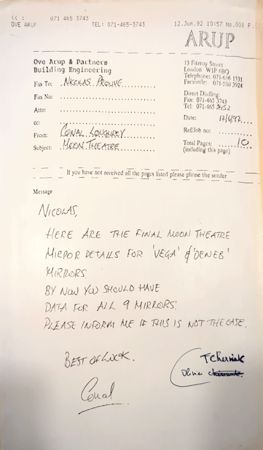 071 465 3743
OVE ARUP TEL: 071-465-3743 12.Jun.92 10:57 No.008 P.
ARUP
Ove Arup & Partners
Building Engineering
13 Fitzroy Street
London W1P 6BQ
Telephone
Facsimile
Fax To: NICOLAS PROUVE
Fax No:
Direct Dialling
Fax: 071-465 3743
Tel: 071-465
Attn:
Date: 12/6/92
cc
Ref/Job no:
From: CONAL
Subject: MOON THEATRE
Total Pages: 10
(including this page)
If you have not received all the pages listed please phone the sender
Message
NICOLAS,
HERE ARE THE FINAL MOON THEATRE
MIRROR DETAILS FOR 'VEGA' & 'DENEB'
MIRRORS
BY NOW YOU SHOULD HAVE
DATA FOR ALL 9 MIRRORS.
PLEASE INFORM ME IF THIS IS NOT THE CASE.
BEST OF LUCK.
Conal